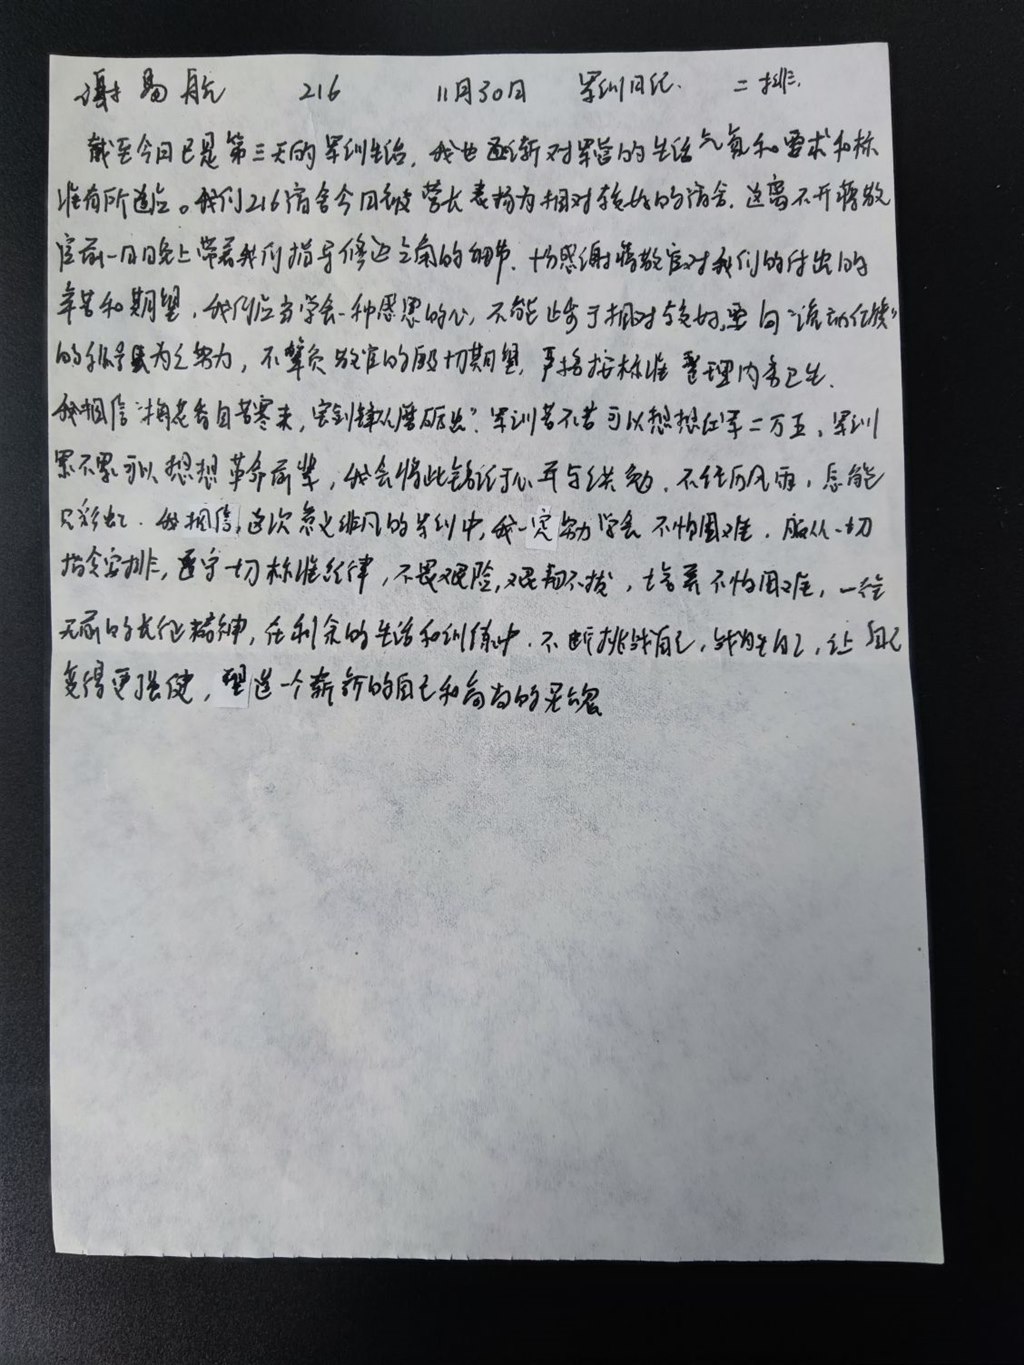 谢易航 216 11月30日 军训日记. 二排.
截至今日已是第三天的军训生活，我也逐渐对军营的生活气氛和要求和标
准有所适应。我们216宿舍今日被营长表扬为相对较好的宿舍，这离不开蒋教
官前一日晚上带着我们指导修边立角的细节，十分感谢蒋教官对我们的付出的
辛苦和期望，我们应当学会一种感恩的心，不能止步于相对较好，要向“流动红旗”
的努力，不辜负教官的殷切期望，严格按标准整理内务卫生.
我相信“梅花香自苦寒来，宝剑锋从磨砺出”.军训苦不苦可以想想红军二万五，军训
累不累可以想想革命前辈，我会将此铭记于心并与共勉.不经历风雨，怎能
见彩虹.我相信，这次意义非凡的军训中，我一定努力学会不怕困难.服从一切
指令安排，遵守一切标准纪律，不畏艰险，艰韧不拔，培养不怕困难，一往
无前的长征精神，在剩余的生活和训练中.不断挑战自己，战胜自己，让自己
变得更强健，塑造一个崭新的自己和高尚的灵魂